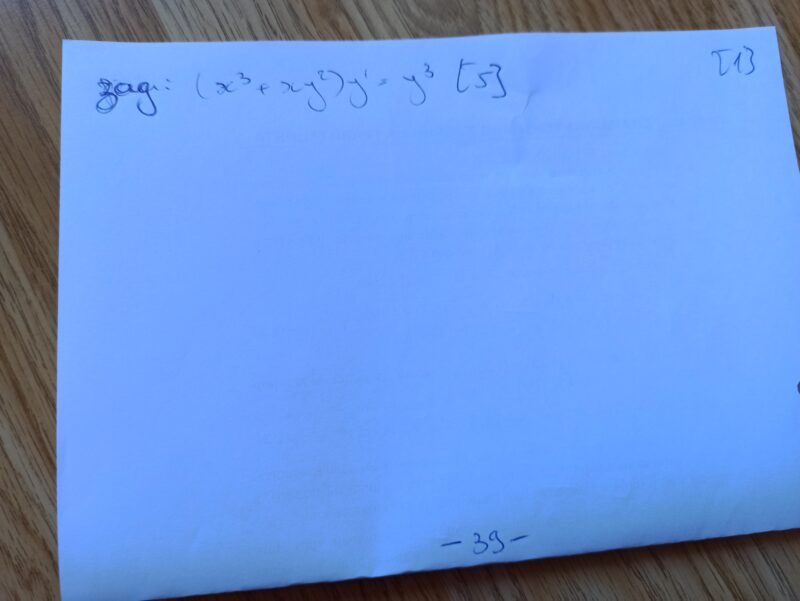 zag: (x³ + xy²)y' = y³ [5]
[1]
- 39 -